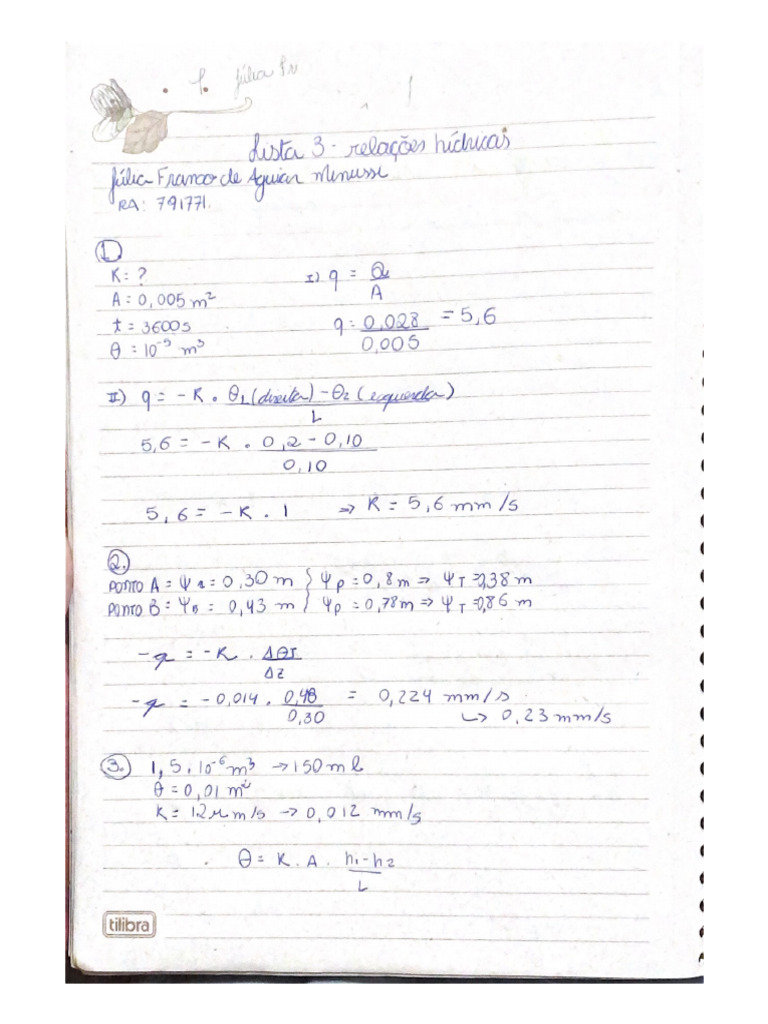 Júlia
Lista 3 - relações hídricas
Júlia Franco de Aguiar Minussi
RA: 791771.
1.
K: ?
I) q = Q / A
A: 0,005 m²
t = 3600s
q: 0,028 / 0,005 = 5,6
θ : 10⁻⁵ m³
II) q = - K . θ₁ (direita) - θ₂ (esquerda) / L
5,6 = - K . 0,2 - 0,10 / 0,10
5,6 = - K . 1 => K = 5,6 mm/s
2.
PONTO A = Ψa = 0,30 m } Ψp = 0,8 m => ΨT = 0,38 m
PONTO B = ΨB = 0,43 m } Ψp = 0,78 m => ΨT = 0,86 m
-q = -K . ΔθT / Δz
-q = -0,014 . 0,48 / 0,30 = 0,224 mm/s.
↳ 0,23 mm/s
3. 1,5 . 10⁻⁶ m³ → 150 ml
θ = 0,01 m²
K = 12 μm/s → 0,012 mm/s
. θ = K . A . h1 - h2 / L
tilibra